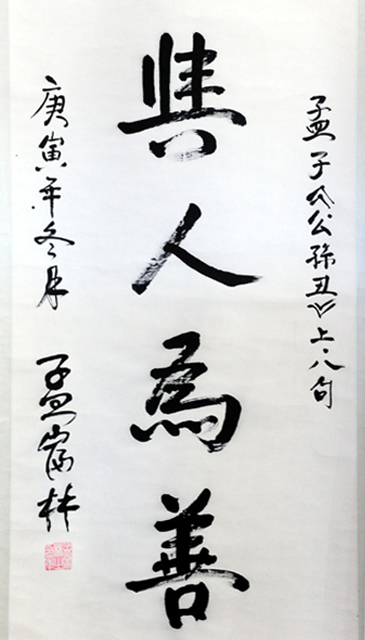 孟子《公孫丑》上·八句
與人為善
庚寅年冬月
孟富林